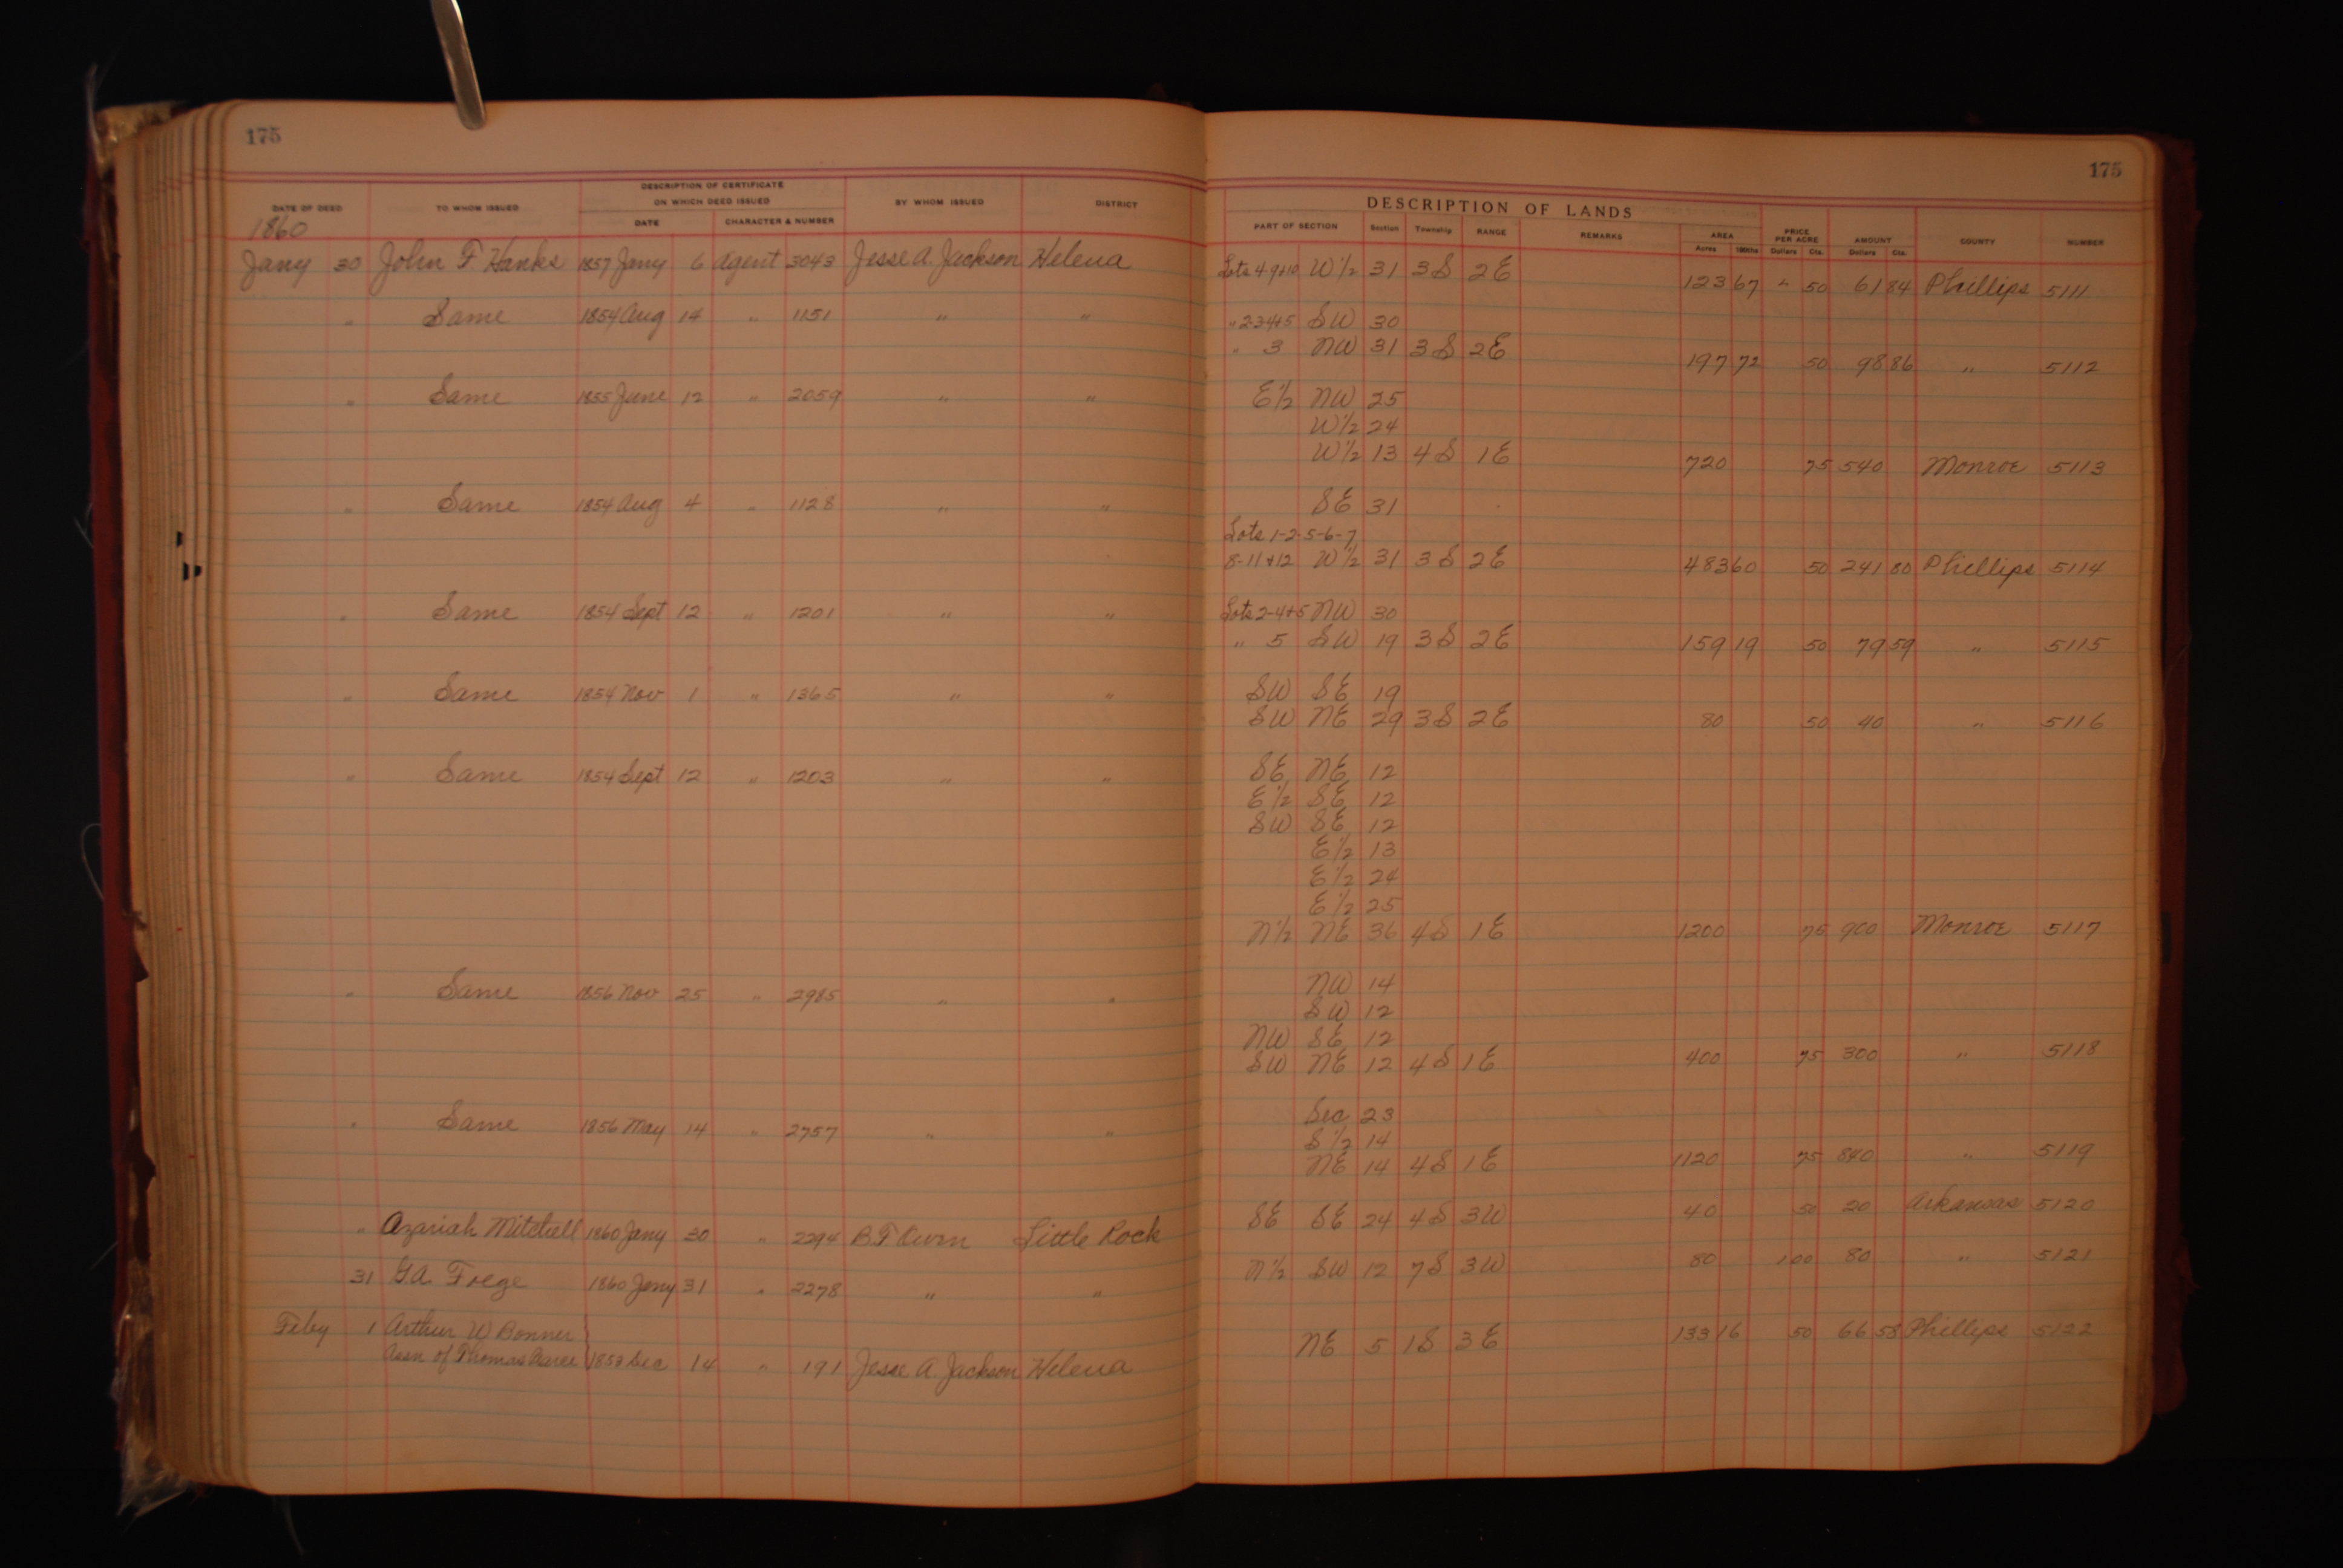 175
175
DATE OF DEED TO WHOM ISSUED DESCRIPTION OF CERTIFICATE ON WHICH DEED ISSUED DATE CHARACTER & NUMBER BY WHOM ISSUED DISTRICT
DESCRIPTION OF LANDS
PART OF SECTION Section Township RANGE REMARKS AREA Acres 100ths PRICE PER ACRE Dollars Cts. AMOUNT Dollars Cts. COUNTY NUMBER
1860
Jany 30 John F Hanks 1857 Jany 6 Agent 3043 Jesse A. Jackson Helena Lots 4-9+10 W½ 31 3S 2E 123 67 " 50 61 84 Phillips 5111
" Same 1854 Aug 14 " 1151 " " " 2-3-4+5 SW 30
" 3 NW 31 3S 2E 197 72 50 98 86 " 5112
" Same 1855 June 12 " 2059 " " E½ NW 25
W½ 24
W½ 13 4S 1E 720 75 540 Monroe 5113
" Same 1854 Aug 4 " 1128 " " SE 31
Lots 1-2-5-6-7
8-11+12 W½ 31 3S 2E 483 60 50 241 80 Phillips 5114
" Same 1854 Sept 12 " 1201 " " Lots 2-4+5 NW 30
" 5 SW 19 3S 2E 159 19 50 79 59 " 5115
" Same 1854 Nov 1 " 1365 " " SW SE 19
SW NE 29 3S 2E 80 50 40 " 5116
" Same 1854 Sept 12 " 1203 " " SE NE 12
E½ SE 12
SW SE 12
E½ 13
E½ 24
E½ 25
N½ NE 36 4S 1E 1200 75 900 Monroe 5117
" Same 1856 Nov 25 " 2985 " " NW 14
SW 12
NW SE 12
SW NE 12 4S 1E 400 75 300 " 5118
" Same 1856 May 14 " 2757 " " Sec 23
S½ 14
NE 14 4S 1E 1120 75 840 " 5119
" Azariah Mitchell 1860 Jany 30 " 2294 B.F. Owen Little Rock SE SE 24 4S 3W 40 50 20 Arkansas 5120
31 G.A. 1860 Jany 31 " 2278 " " N½ SW 12 7S 3W 80 1 00 80 " 5121
Feby 1 Arthur W Bonner
Assn of Thomas 1853 Dec 14 " 191 Jesse A. Jackson Helena NE 5 1S 3E 133 16 50 66 58 Phillips 5122